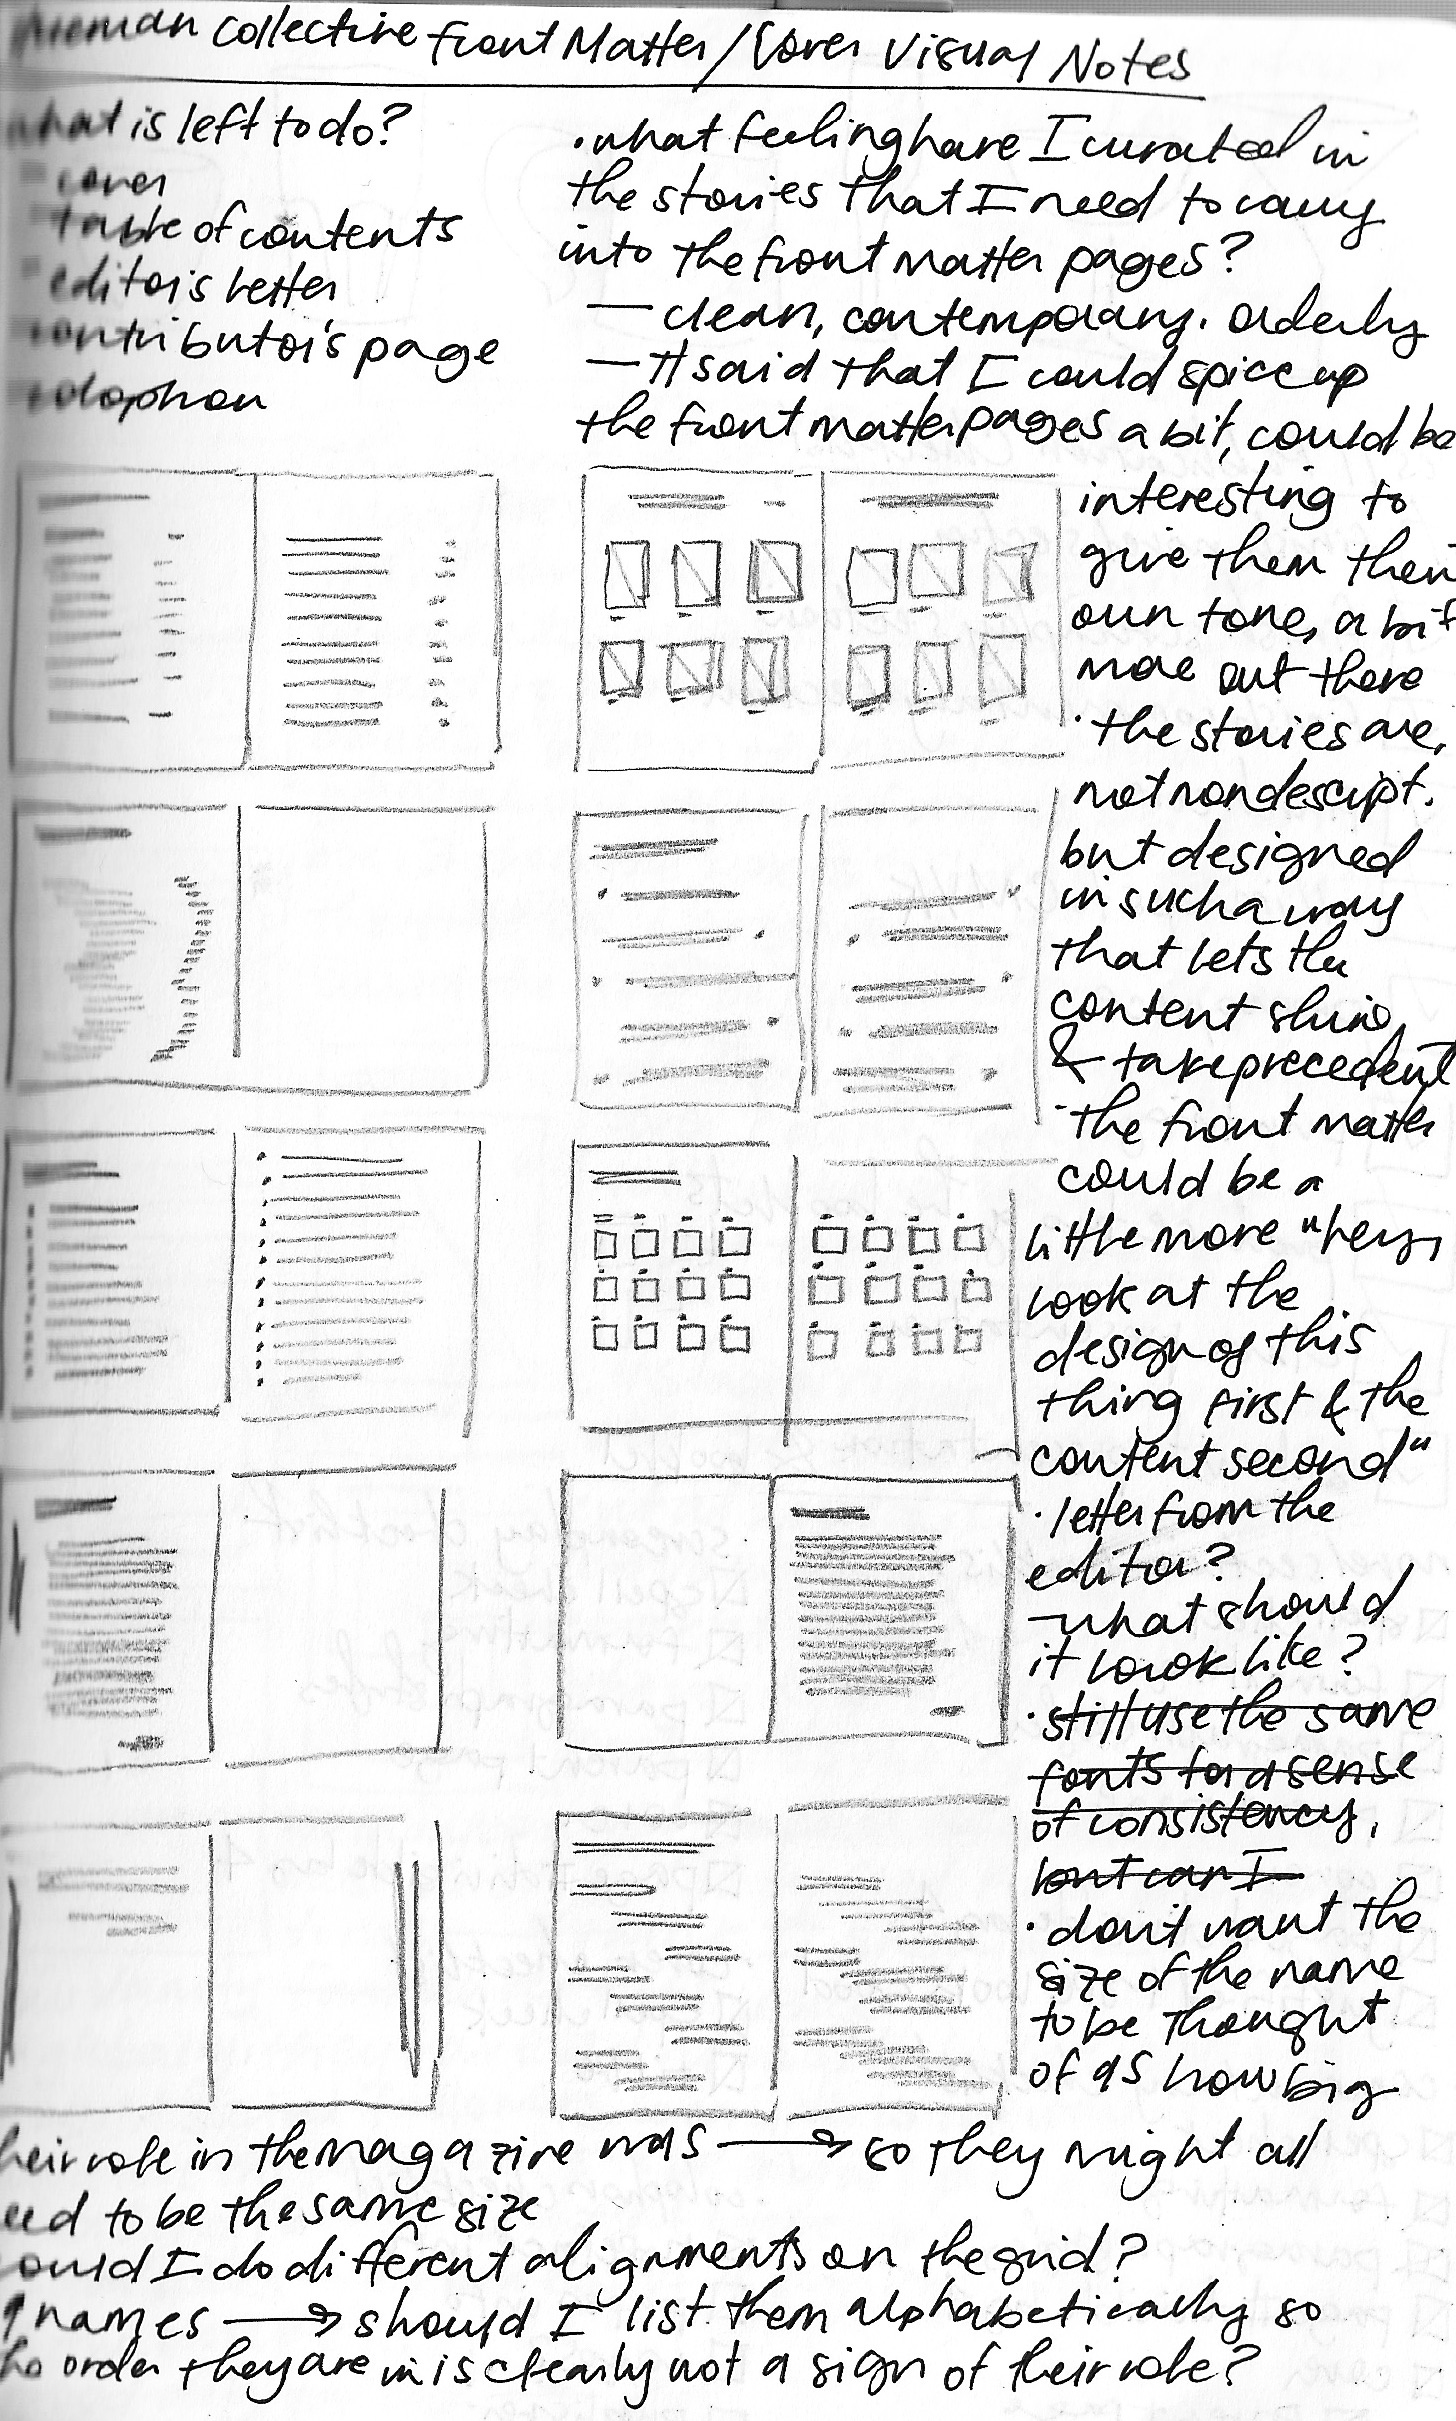 human collective front Matter/Cover Visual Notes
what is left to do?
cover
table of contents
editor's letter
contributor's page
colophon
• what feeling have I curated in
the stories that I need to carry
into the front matter pages?
— clean, contemporary. orderly
— H said that I could spice up
the front matter pages a bit, could be
interesting to
give them their
own tone, a bit
more out there
• the stories are,
not nondescript.
but designed
in such a way
that lets the
content shine,
& take precedent
• the front matter
could be a
little more "hey,
look at the
design of this
thing first & the
content second"
• letter from the
editor?
— what should
it look like?
• still use the same
fonts for a sense
of consistency,
but can I
• don't want the
size of the name
to be thought
of as how big
their role in the magazine was → so they might all
need to be the same size
could I do different alignments on the grid?
names → should I list them alphabetically so
the order they are in is clearly not a sign of their role?